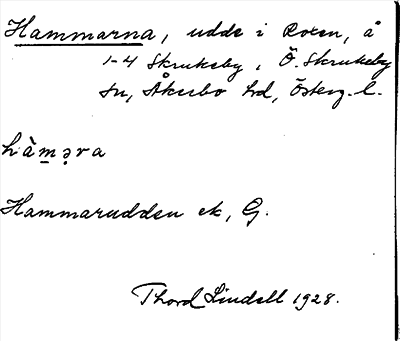 Hammarna, udde i Roxen, å
1-4 Skrukeby, Ö. Skrukeby
sn, Åkerbo hd, Österg. l.
hàməra
Hammarudden ek, G.
Thord Lindell 1928.